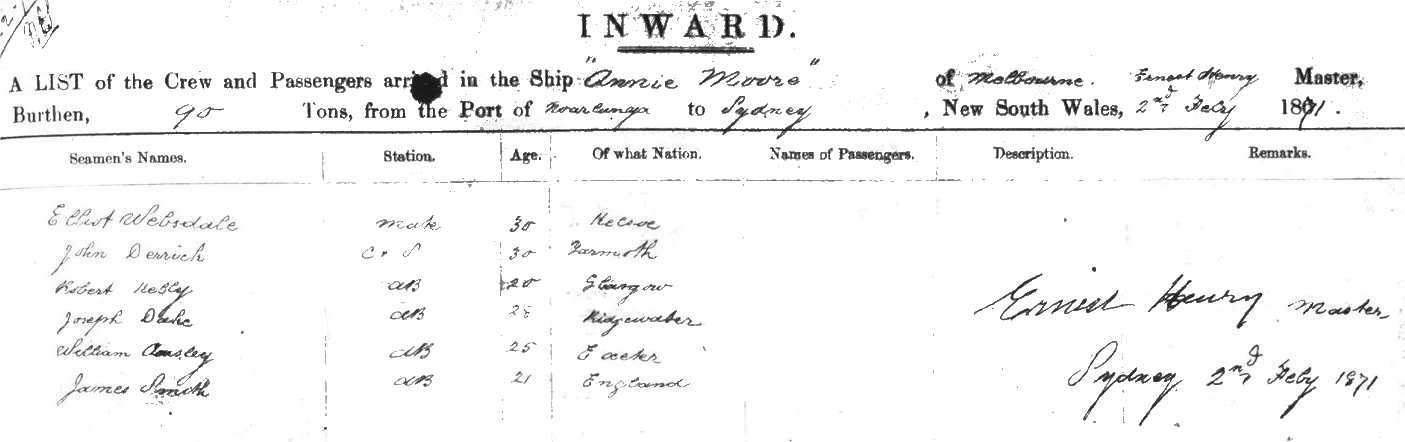 INWARD.
A LIST of the Crew and Passengers arrived in the Ship "Annie Moore" of Melbourne. Ernest Henry Master,
Burthen, 90 Tons, from the Port of Noarlunga to Sydney, New South Wales, 2nd Feby 1871.
Seamen's Names. Station. Age. Of what Nation. Names of Passengers. Description. Remarks.
Elliot Websdale Mate 30 Kelsoe
John Derrich C & S 30 Yarmoth
Robert Kelly AB 20 Glasgow
Joseph Duke AB Bidgewater
William Ansley AB 25 Exeter
James Smith AB 21 England
Ernest Henry Master
Sydney 2nd Feby 1871